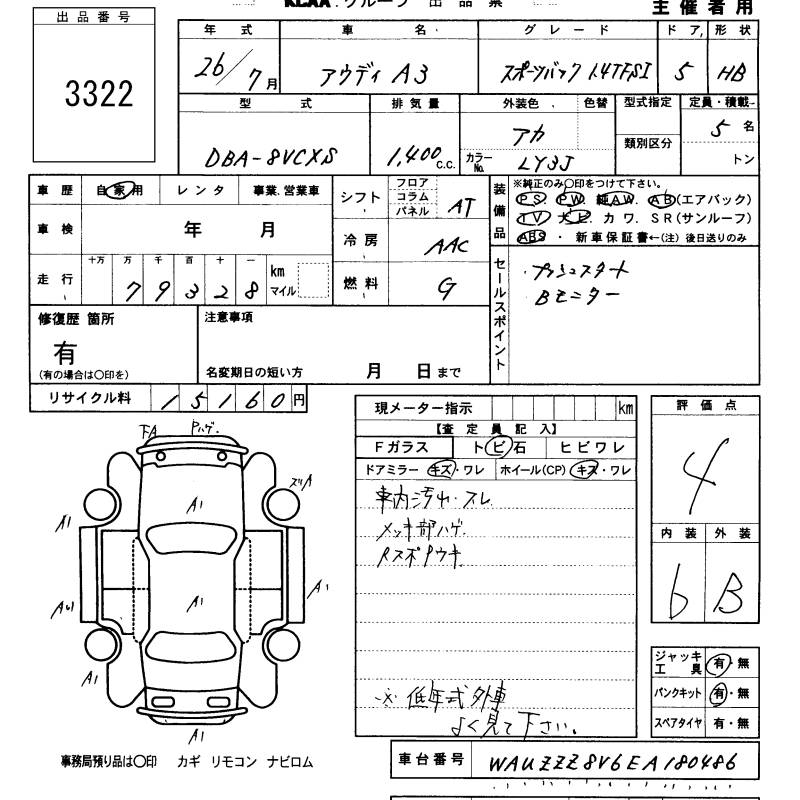 KCAA.グループ 出品票
主催者用
出品番号
3322
年式 車名 グレード ドア 形状
26/7月 アウディ A3 スポーツバック 1.4TFSI 5 HB
型式 排気量 外装色 色替 型式指定 定員・積載
DBA-8VCXS 1,400 c.c. アカ 5名
カラーNo. LY3J 類別区分 トン
車歴 自家用 レンタ 事業.営業車
シフト フロア コラム パネル AT
装備品 ※純正のみ○印をつけて下さい。
PS. PW. 純AW. AB(エアバック)
TV 大ビ. カワ. SR(サンルーフ)
ABS ・ 新車保証書←(注) 後日送りのみ
車検 年 月
冷房 AAC
走行 十万 万 千 百 十 一
79328 km マイル
燃料 G
セールスポイント
・プッシュスタート
・Bモニター
修復歴 箇所
有
(有の場合は○印を)
注意事項
名変期日の短い方 月 日まで
リサイクル料 15160円
現メーター指示 km
【査定員記入】
Fガラス トビ石 ヒビワレ
ドアミラー キズ・ワレ ホイール(CP) キズ・ワレ
車内汚れ・スレ
メッキ部ハゲ.
RスポPウキ
※ 低年式外車
よく見て下さい。
評価点
4
内装 外装
6 B
FA Pハゲ.
A1
A1
A1
A1
A1
A1
ジャッキ工具 有・無
パンクキット 有・無
スペアタイヤ 有・無
事務局預り品は○印 カギ リモコン ナビロム
車台番号 WAUZZZ8V6EA180486